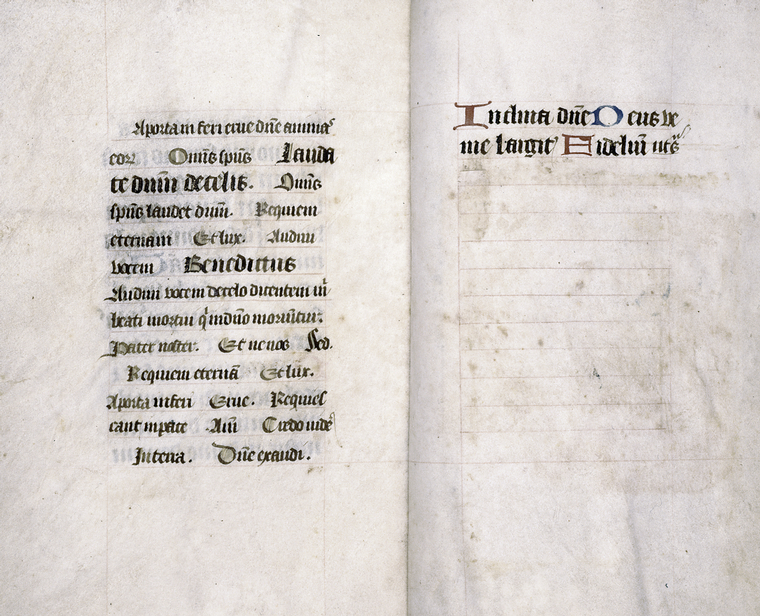 A porta inferi erue dñe animas
eorꝝ Omnis spūs Lauda
te dnm̄ de celis. Omnis
spūs laudet dnm̄. Requiem
eternam Et lux. Audiui
vocem Benedictus
Audiui vocem de celo dicentem m̄
beati mortui q̄ in dn̄o moriūtur.
Pater noster. Et ne nos Sed.
Requiem eternā Et lux.
A porta inferi Erue. Requies
cant in pace Am̄ Credo vide
In terra. Dn̄e exaudi.
Inclina dn̄e Deus ve
nie largit' Fideliū